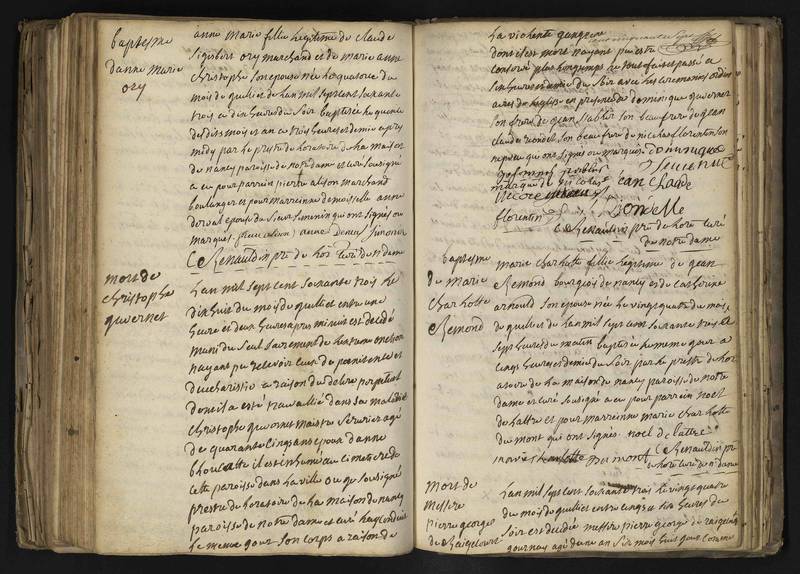 baptesme
danne marie
ory
anne marie fille legitime de claude
sigisbert ory marchand et de marie anne
christophe son epouse née le quatorze du
mois de juillet de lan mil sept cent soixante
trois a dix heures du soir baptisée le quinze
desdits mois et an a trois heures et demie apres
midy par le prestre de loratoire de la maison
de nancy paroisse de notre dame et curé soussigné
a eu pour parrein pierre alison marchand
boulanger et pour marreinne demoiselle anne
epouse du sieur qui ont signés ou
marqués pierre alison anne
C Renauldin pre de lor curé de n dame
mort de
christophe
quvernet
Lan mil sept cent soixante trois le
dixhuit du mois de juillet entre une
heure et deux heures apres minuit est decedé
muni du seul sacrement de lextreme onction
nayant pu recevoir ceux de penitence et
deucharistie a raison du delire perpetuel
dont il a esté travaillié dans sa maladie
christophe quvernet maistre serurier agé
de quarante cinq ans epoux danne
il est enhumé au cimetiere de
cette paroisse dans la ville ou je soussigné
prestre de loratoire de la maison de nancy
paroisse de notre dame et curé lay conduit
le mesme jour son corps a raison de
la violente gangrene
dont il est mort nayant pu estre
conservé plus longtemps le tout fait et passé a
heures et demie du soir avec les ceremonies ordin
aires de leglise en presence de dominique quvernet
son frere de jean son beau frere de jean
claude rondel son beau frere de nicolas florentin son
nepveu qui ont signés ou marqués dominique
marque de nicolas jean claude
florentin Rondelle
C Renauldin pre de lore curé
de notre dame
baptesme
de marie
charlotte
Remond
marie charlotte fille legitime de jean
Remond bourgeois de nancy et de catherine
arnould son epouse née le vingt quatre du mois
de juillet de lan mil sept cent soixante trois a
sept heures du matin baptisée le meme jour a
cinq heures et demie du soir par le prestre de lor
atoire de la maison de nancy paroisse de notre
dame et curé soussigné a eu pour parrein noel
de lattre et pour marreinne marie charlotte
du mont qui ont signés noel de lattre
marie charlotte du mont C Renauldin pre
de lore curé de n dame
mort de
messire
pierre george
de
Lan mil sept cent soixante trois le vingt quatre
du mois de juillet entre cinq et six heures du
soir est decedée messire pierre george de
gournay agé de un an six mois huit jours comme